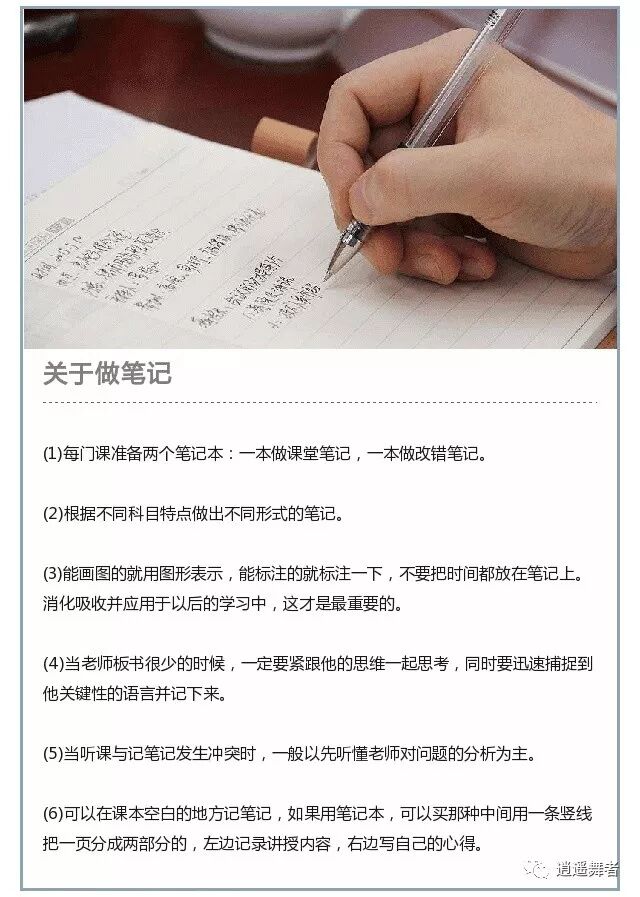 关于做笔记
(1)每门课准备两个笔记本：一本做课堂笔记，一本做改错笔记。
(2)根据不同科目特点做出不同形式的笔记。
(3)能画图的就用图形表示，能标注的就标注一下，不要把时间都放在笔记上。
消化吸收并应用于以后的学习中，这才是最重要的。
(4)当老师板书很少的时候，一定要紧跟他的思维一起思考，同时要迅速捕捉到
他关键性的语言并记下来。
(5)当听课与记笔记发生冲突时，一般以先听懂老师对问题的分析为主。
(6)可以在课本空白的地方记笔记，如果用笔记本，可以买那种中间用一条竖线
把一页分成两部分的，左边记录讲授内容，右边写自己的心得。
逍遥舞者